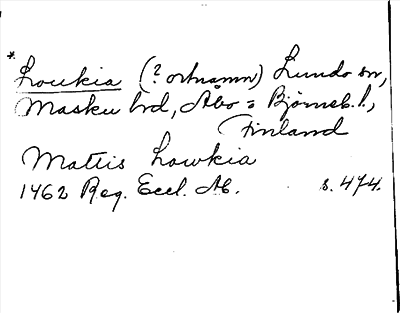 * Loukia (? ortnamn) Lundo sn,
Masku hd, Åbo = Björneb. l.,
Finland
Mattis Lowkia
1462 Reg. Eccl. Ab. s. 474.